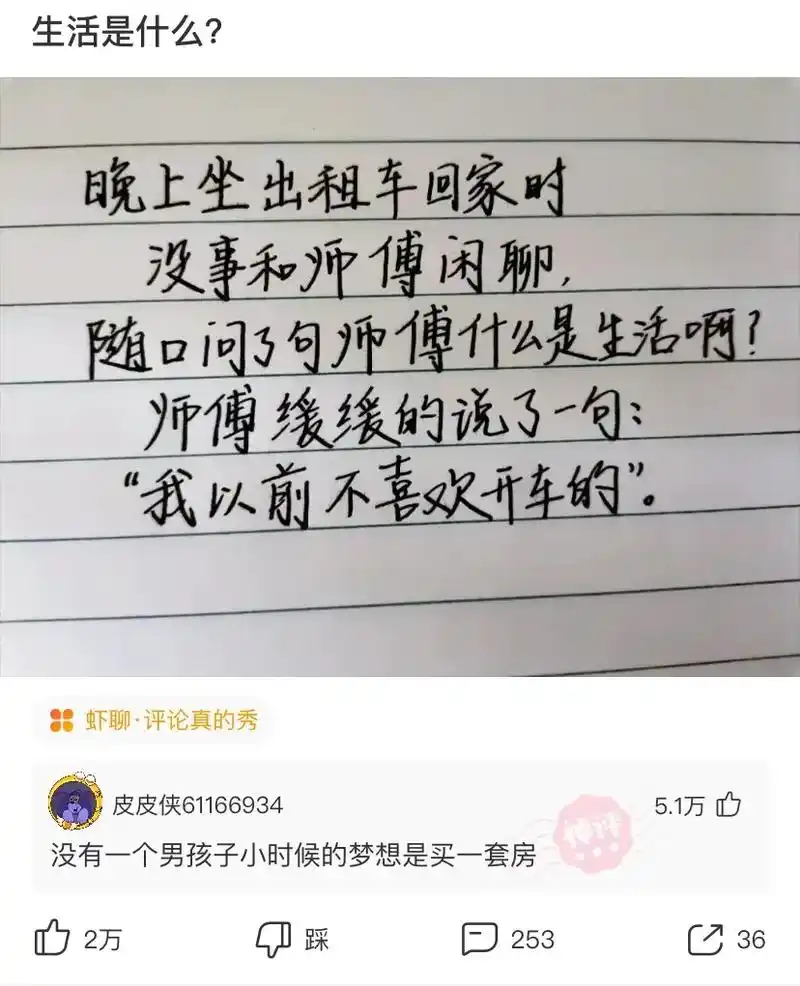 生活是什么?
晚上坐出租车回家时
没事和师傅闲聊,
随口问了句师傅什么是生活啊?
师傅缓缓的说了一句:
“我以前不喜欢开车的”。
虾聊·评论真的秀
皮皮侠61166934
5.1万
神评
没有一个男孩子小时候的梦想是买一套房
2万
踩
253
36